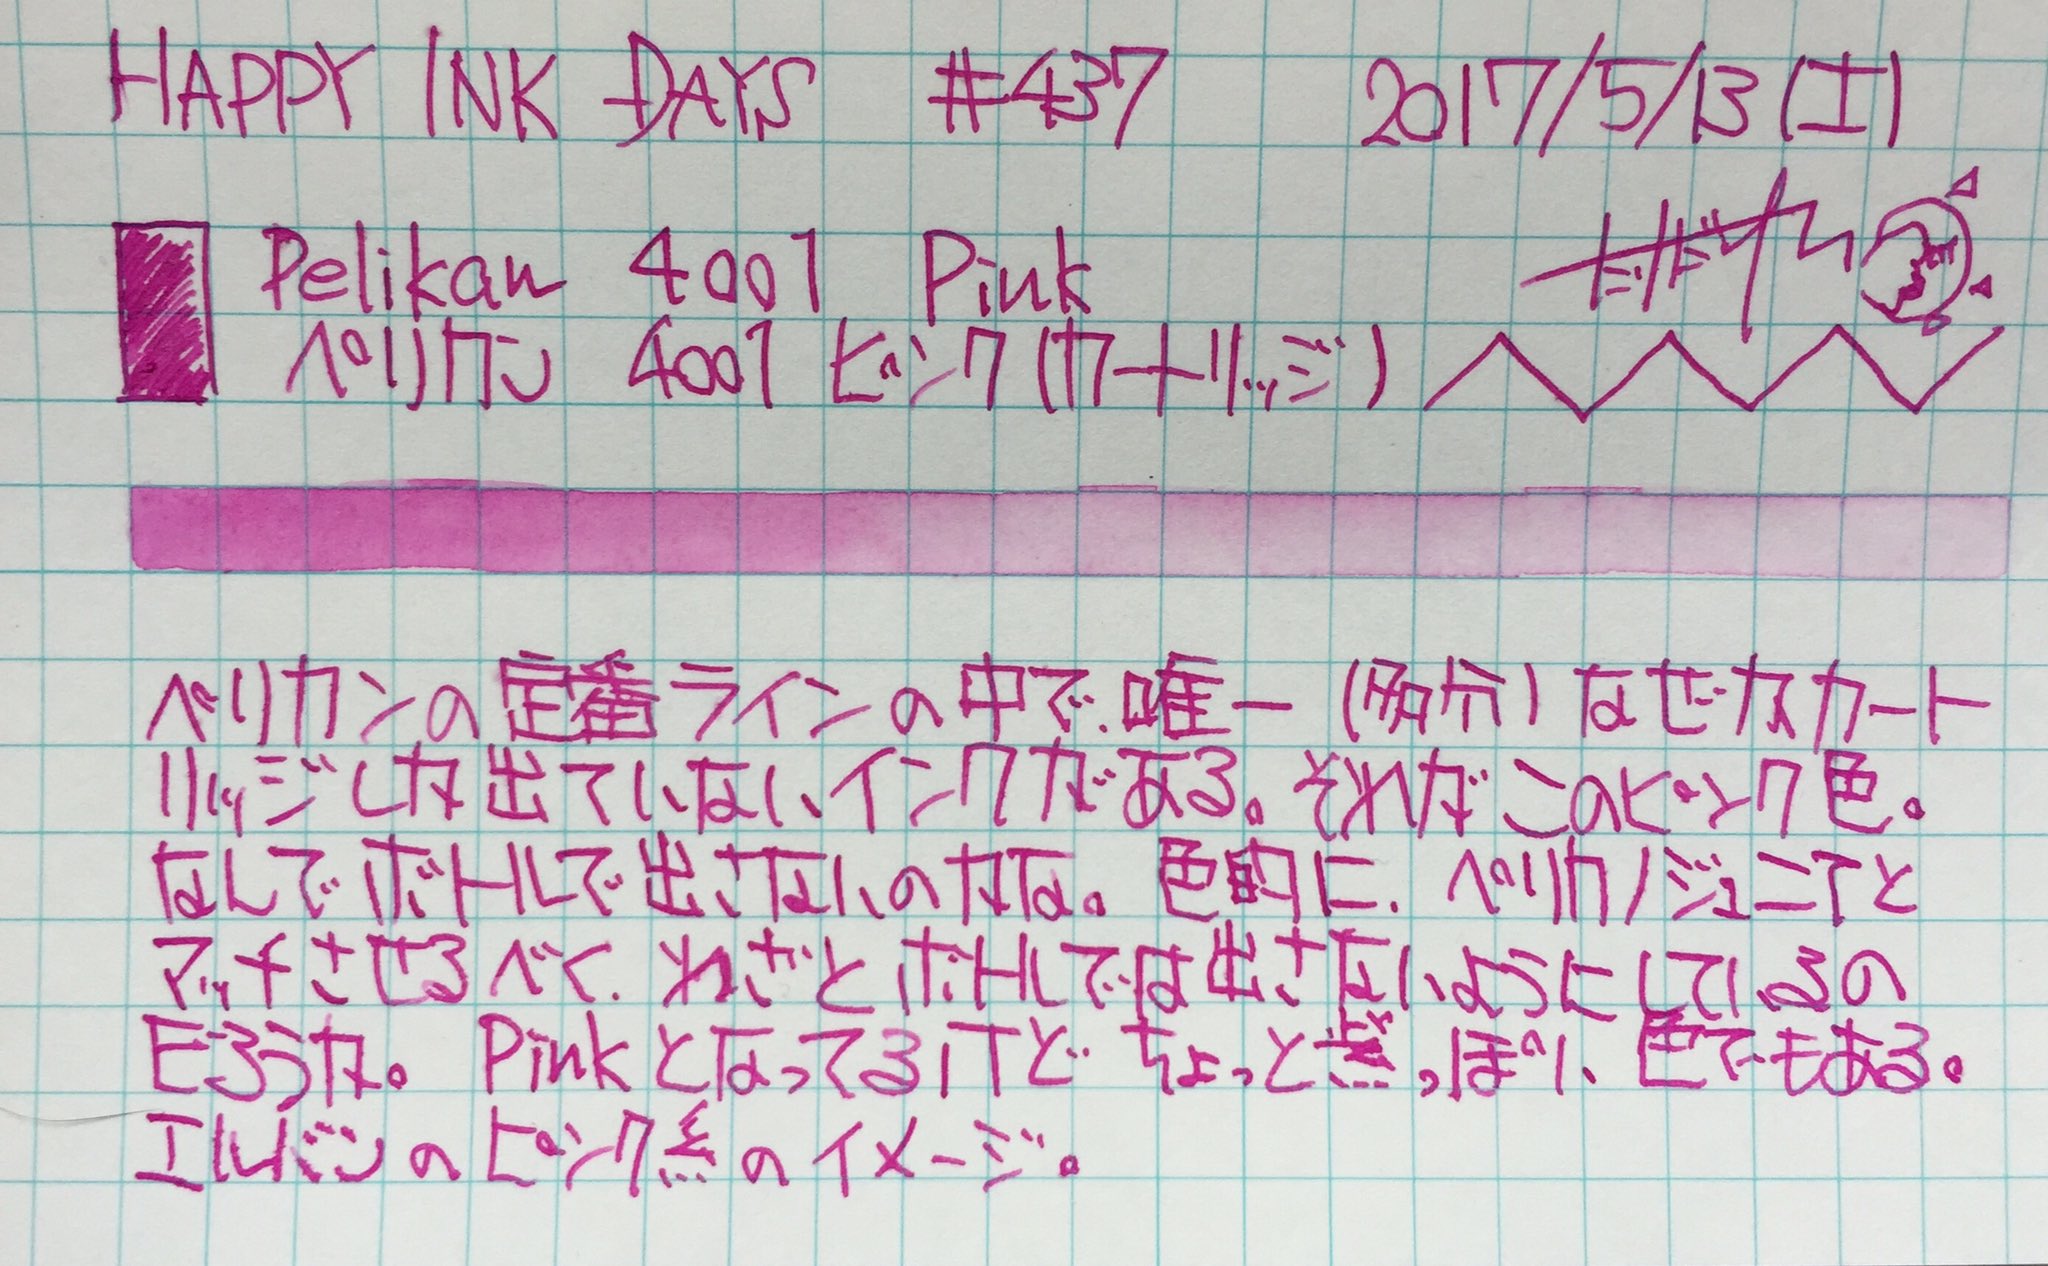 HAPPY INK DAYS #437 2017/5/13(土)
Pelikan 4001 Pink
ペリカン 4001 ピンク(カートリッジ)
ペリカンの定番ラインの中で、唯一(多分)なぜかカート
リッジしか出ていないインクがある。それがこのピンク色。
なんでボトルで出さないのかな。色的に、ペリカノジュニアと
マッチさせるべく、わざとボトルでは出さないようにしているの
だろうか。Pinkとなってるけど ちょっと紫っぽい、色でもある。
エルバンのピンク系のイメージ。